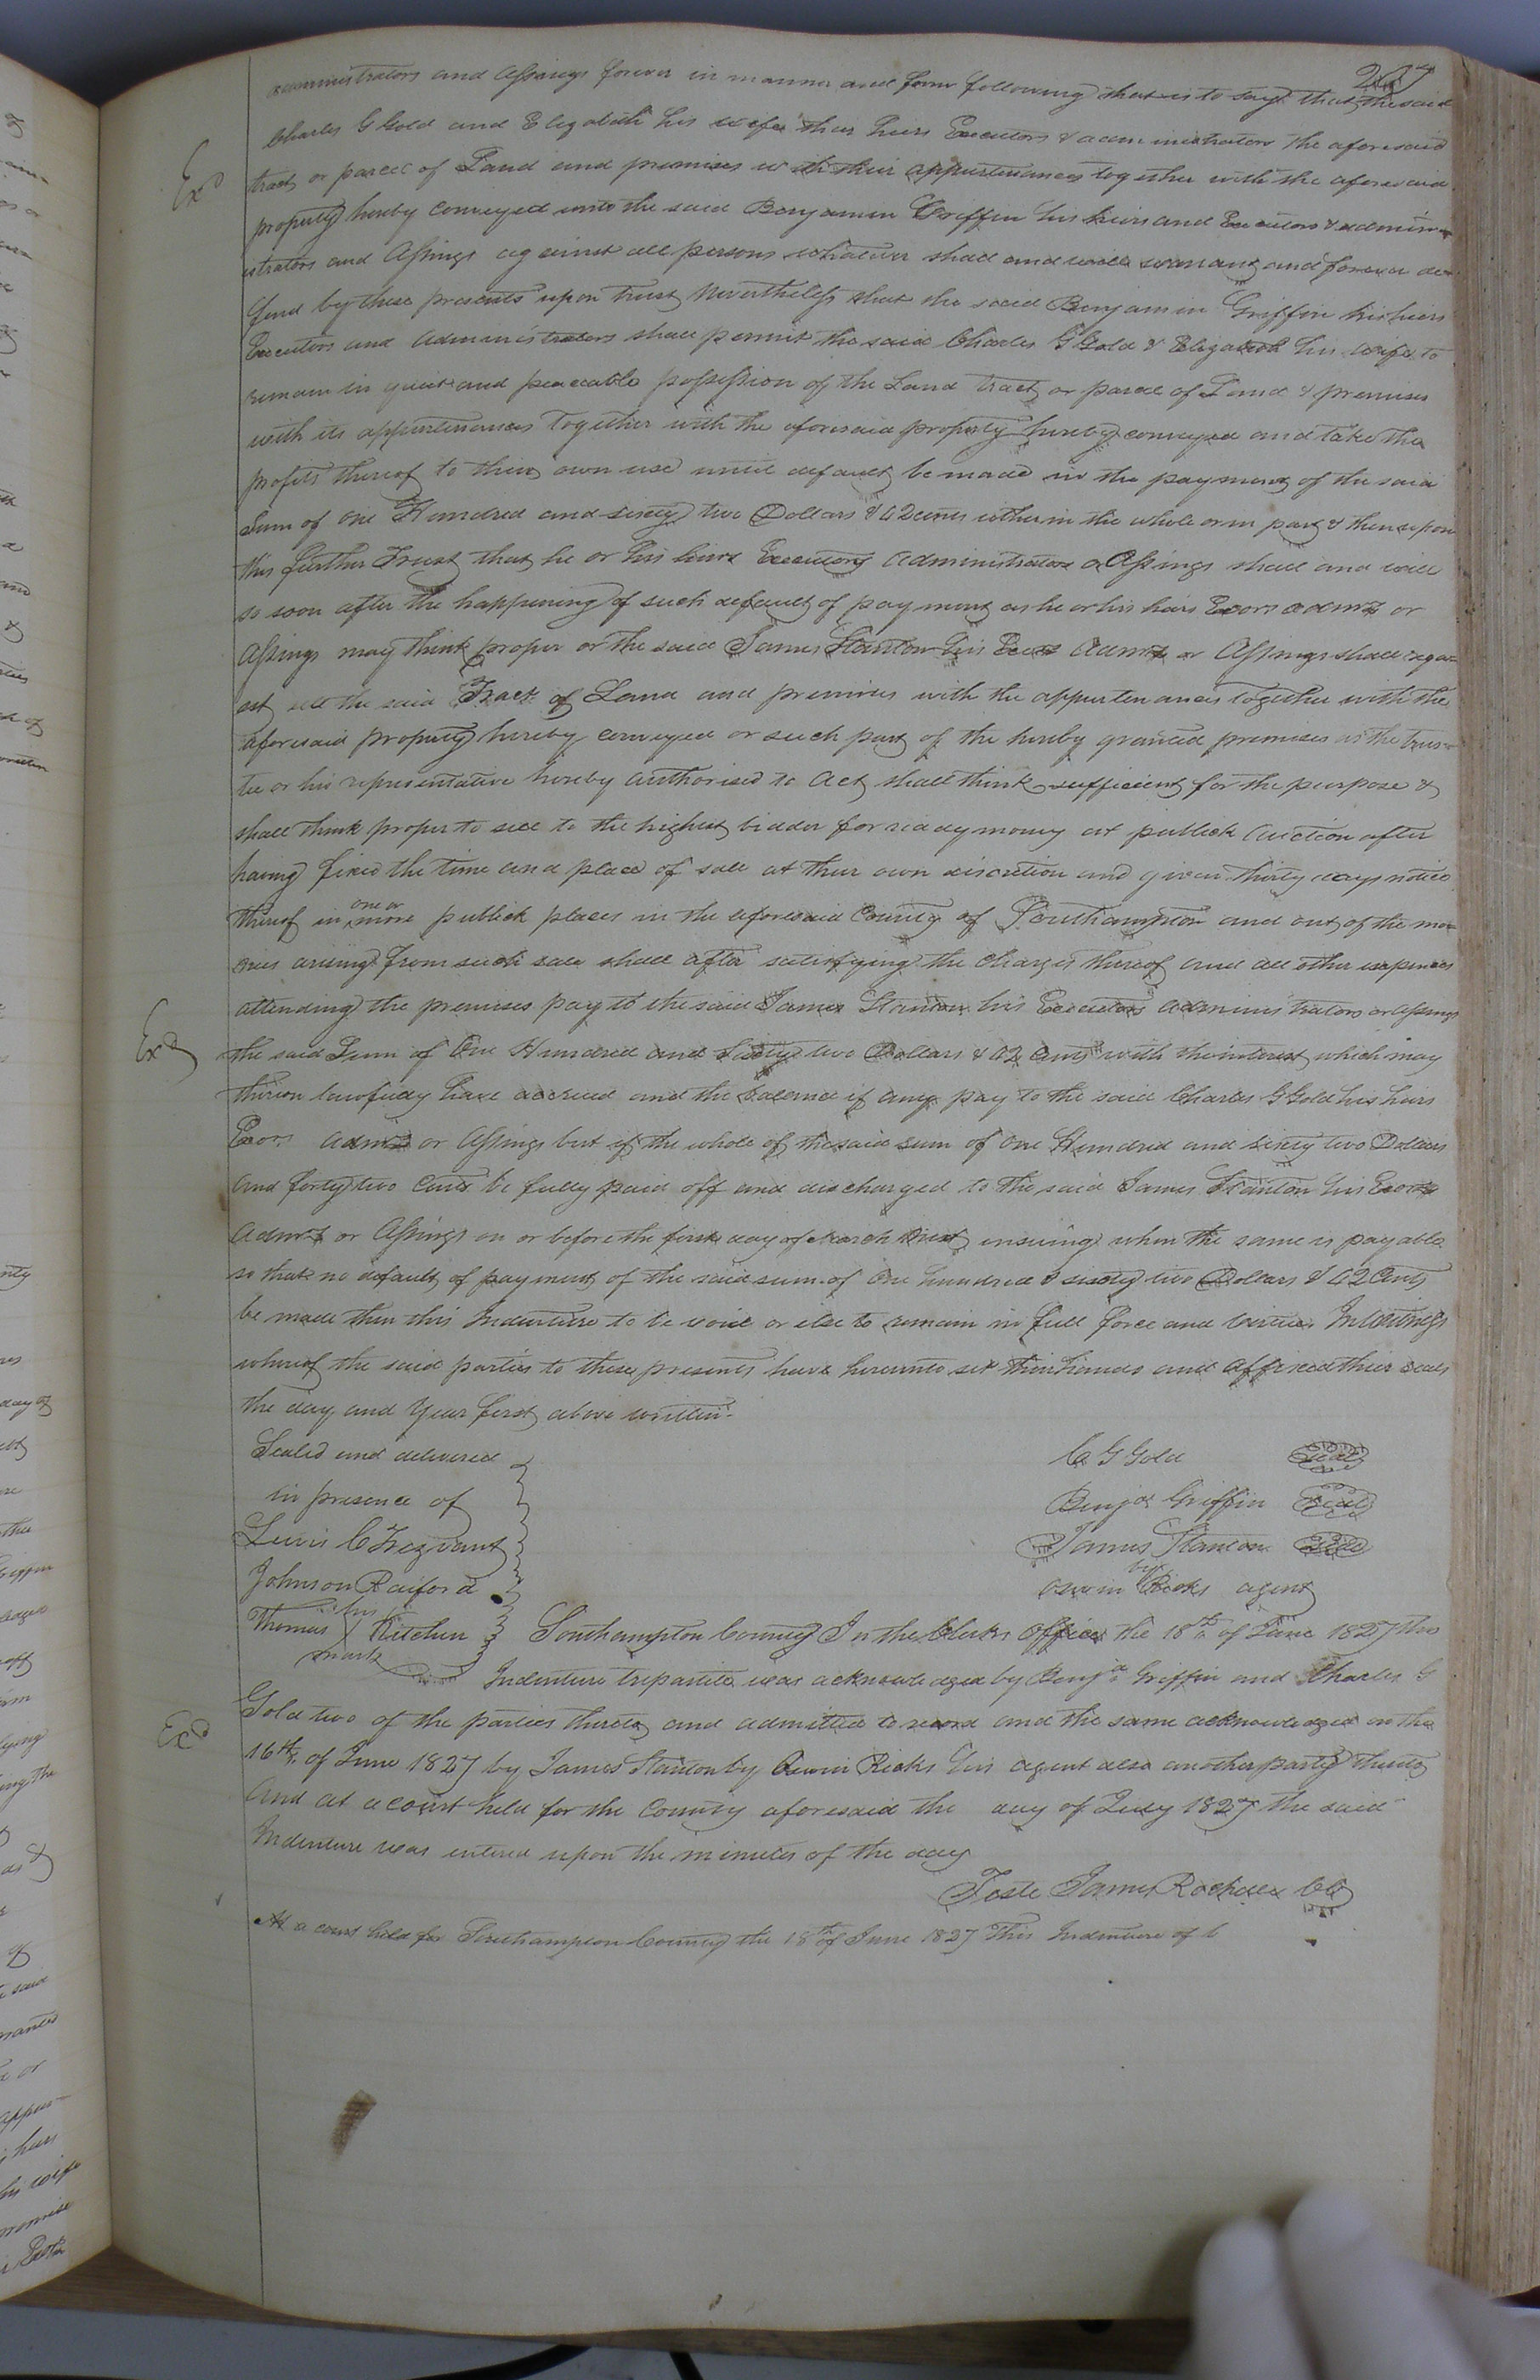 207
administrators and Assings forever in manner and form following that is to say that the said
Charles G Gold and Elizabeth his wife their heirs Executors & administrators the aforesaid
Exd
tract or parcel of Land and premises with their appurtenances together with the aforesaid
property hereby conveyed unto the said Benjamin Griffin his heirs and Executors & admin
istrators and Assings against all persons whatever shall and will warrant and forever de
fend by these presents upon trust Nevertheless that the said Benjamin Griffin his heirs
Executors and Administrators shall permit the said Charles G Gold & Elizabeth his wife to
remain in quiet and peaceable possession of the Land tract or parcel of Land & premises
with its appurtenances Together with the aforesaid property hereby conveyed and take the
profits thereof to their own use until default be made in the payment of the said
Sum of one Hundred and sixty two Dollars & 42 cents either in the whole or in part & then upon
this further Trust that he or his heirs Executors administrators or Assings shall and will
so soon after the happening of such default of payment as he or his heirs Exors admrs or
Assings may think proper or the said James Stanton his Exors Admrs or Assings shall requ
est sell the said Tract of Land and premises with the appurtenances together with the
aforesaid property hereby conveyed or such part of the hereby granted premises as the trus
tee or his representative hereby authorised to Act shall think sufficient for the purpose &
shall think proper to sell to the highest bidder for ready money at publick Auction after
having fixed the time and place of sale at their own discretion and given thirty days notice
thereof in one or more publick places in the aforesaid County of Southampton and out of the mon
ies arising from such sale shall after satisfying the charges thereof and all other expences
attending the premises pay to the said James Stanton his Executors administrators or Assings
Exd
the said Sum of One Hundred and Sixty two Dollars & 42 Cents with the interest which may
thereon lawfully have accrued and the balance if any pay to the said Charles G Gold his heirs
Exors admrs or Assings but if the whole of the said sum of one Hundred and sixty two Dollars
and forty two Cents be fully paid off and discharged to the said James Stanton his Exors
Admrs or Assings on or before the first day of March Next ensuing when the same is payable
so that no default of payment of the said sum of One hundred & sixty two Dollars & 42 Cents
be made then this Indenture to be void or else to remain in full force and virtue In
whereof the said parties to these presents have hereunto set their hands and affixed their seals
the day and Year first above written
Sealed and delivered
in presence of
Lewis C Trezvant
Johnson Raiford
Thomas his X mark Kitchen
C G Gold seal
Benja Griffin seal
James Stanton seal
by
Oswin Ricks agent
Southampton County In the Clerks Office the 18th of June 1827 this
Indenture tripartite was acknowledged by Benja Griffin and Charles G
Exd
Gold two of the parties thereto and admitted to record and the same acknowledged on the
16th of June 1827 by James Stanton by Oswin Ricks his agent also another party thereto
And at a court held for the County aforesaid the day of July 1827 the said
Indenture was entered upon the minutes of the day
Teste James Rochelle CC
At a court held for Southampton County the 18th of June 1827 This Indenture of b